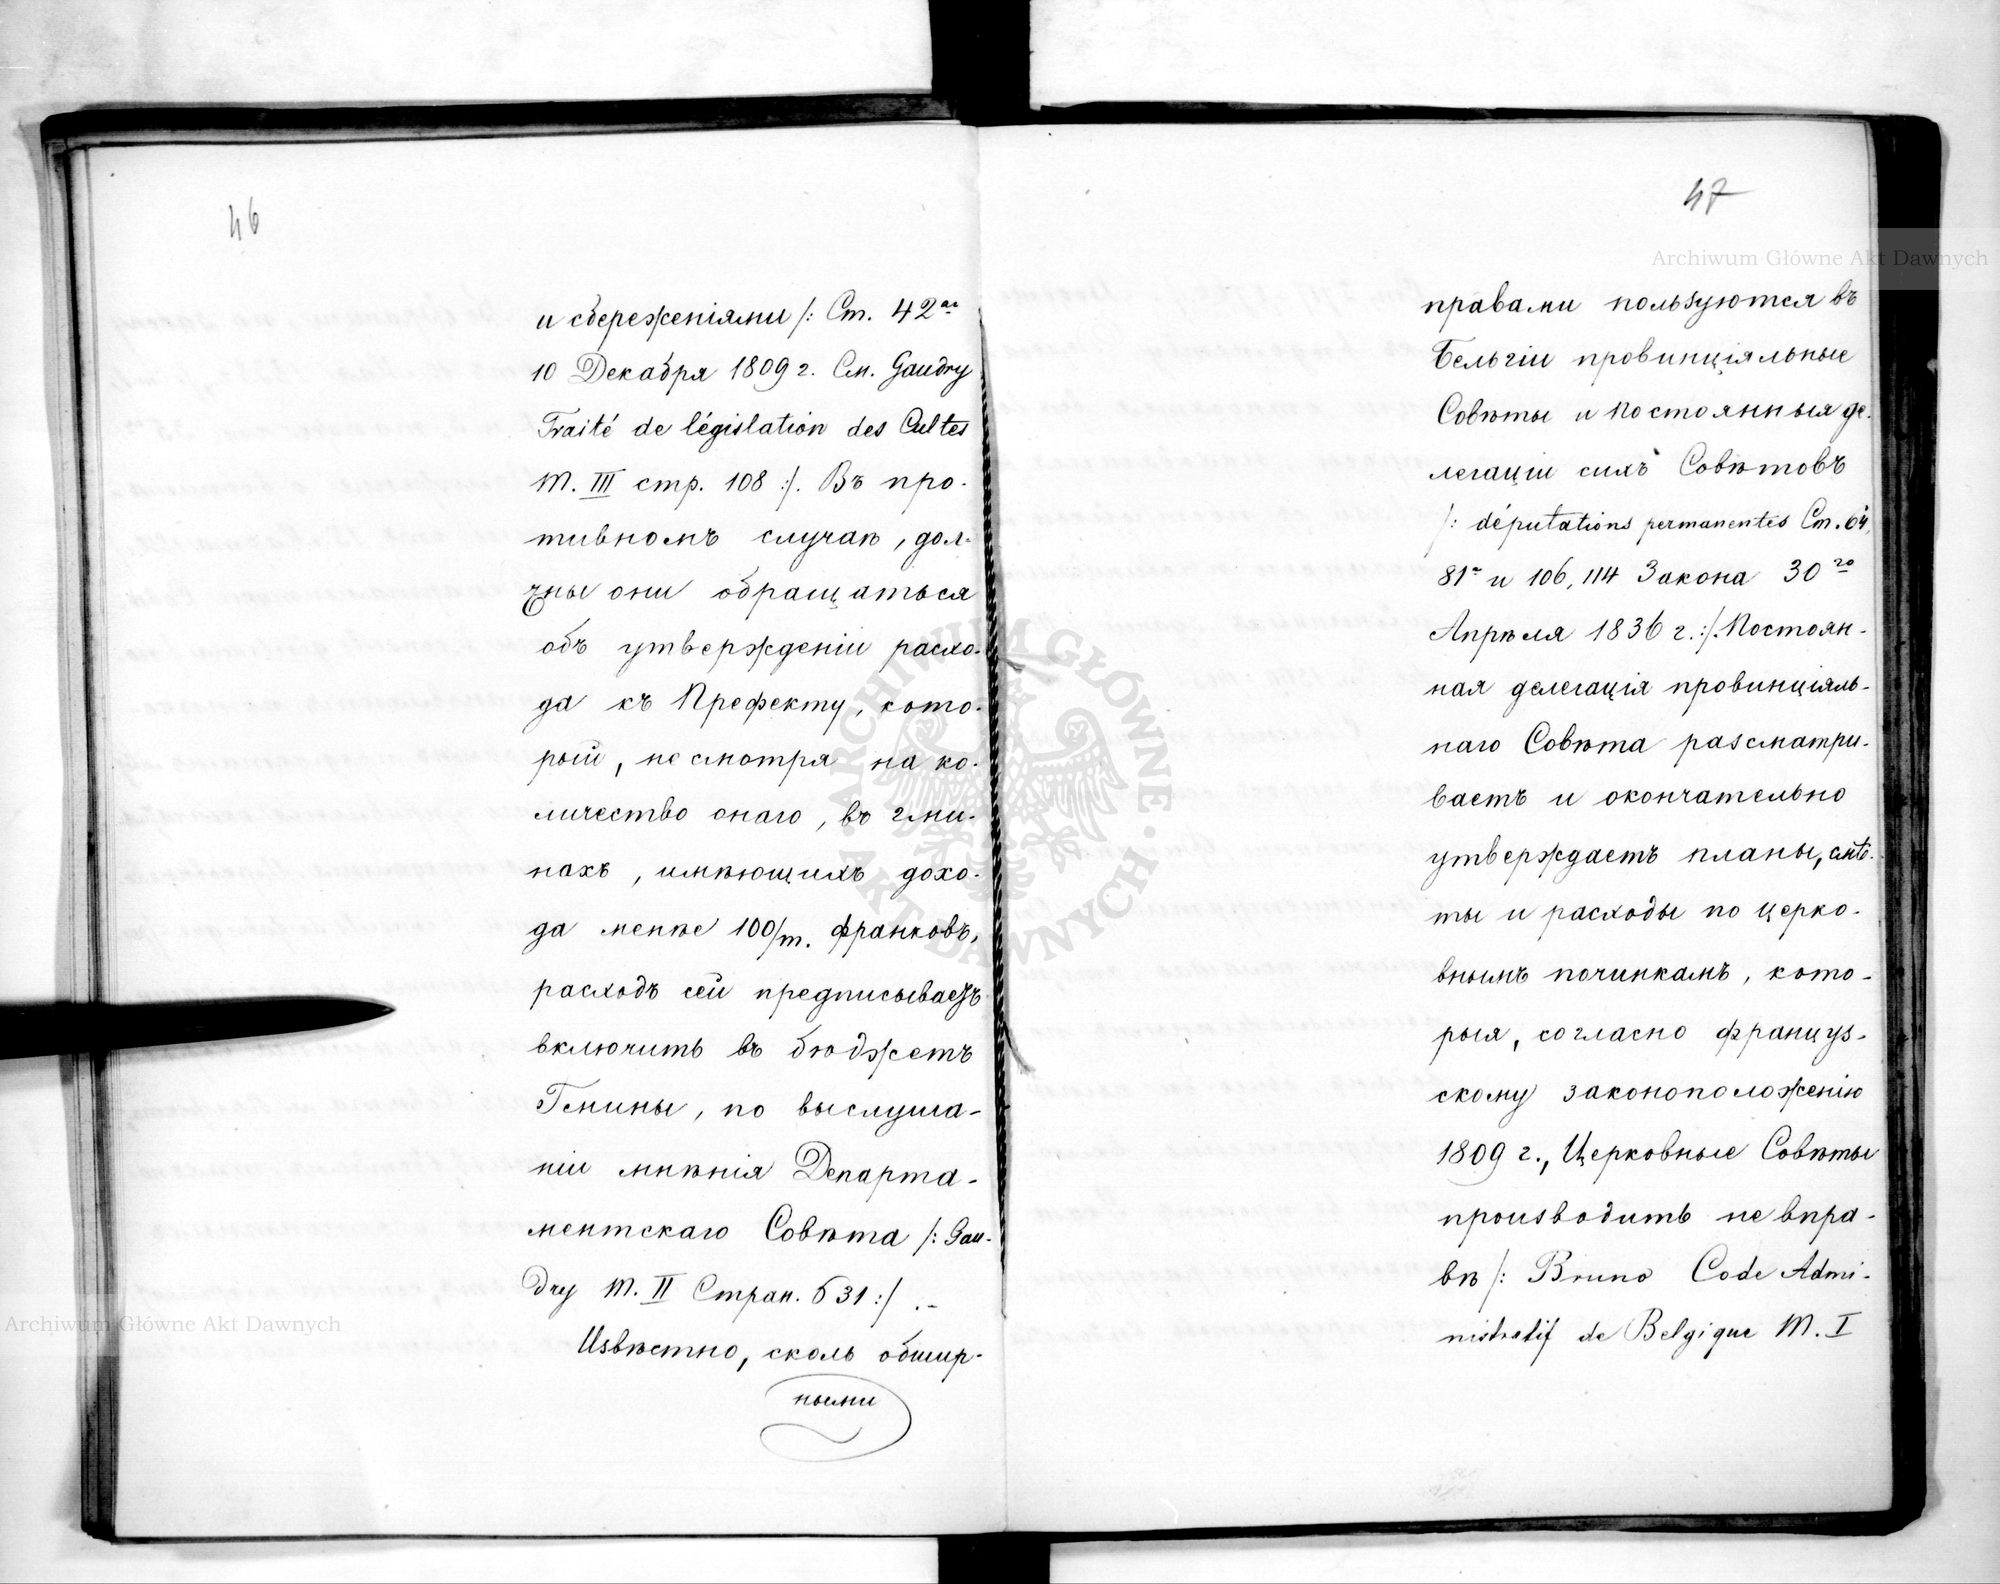 46
и сбереженіями /: Ст. 42ая
10 Декабря 1809 г. См. Gaudry
Traité de législation des Cultes
Т. III стр. 108 :/. Въ про-
тивномъ случаѣ, дол-
жны они обращаться
объ утвержденіи расхо-
да къ Префекту, кото-
рый, не смотря на ко-
личество онаго, въ гми-
нахъ, имѣющихъ дохо-
да менѣе 100/т. франковъ,
расходъ сей предписываетъ
включить въ бюджетъ
Гмины, по выслуша-
ніи мнѣнія Департа-
ментскаго Совѣта /: Gau-
dry Т. II Стран. 631 :/ .-
Извѣстно, сколь обшир-
ными
47
правами пользуются въ
Бельгіи провинціяльные
Совѣты и постоянныя де-
легаціи сихъ Совѣтовъ
/: députations permanentes Ст. 64,
81я и 106, 114 Закона 30го
Апрѣля 1836 г. :/. Постоян-
ная делегація провинціяль-
наго Совѣта разсматри-
ваетъ и окончательно
утверждаетъ планы, смѣ-
ты и расходы по церко-
внымъ починкамъ, кото-
рыя, согласно францус-
скому законоположенію
1809 г., Церковные Совѣты
производить не впра-
вѣ /: Bruno Code Admi-
nistratif de Belgique Т. I
Archiwum Główne Akt Dawnych
Archiwum Główne Akt Dawnych
ARCHIWUM GŁÓWNE · AKT DAWNYCH ·